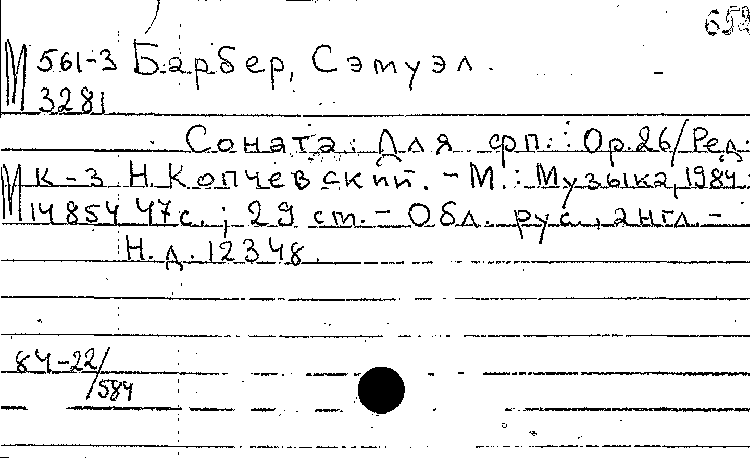 652
М 561-3 Барбер, Сэмуэл.
3281
Соната: Для фп.: Op.26/Ред.
М К-3 Н.Копчевский. - М.: Музыка, 1984.
14854 47с.; 29 см. - Обл. рус., англ. -
Н.д. 12348.
84-22/
584